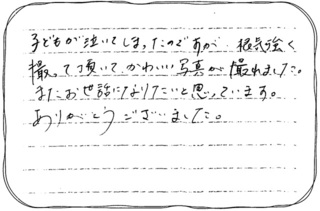 子どもが泣いてしまったのですが、根気強く
撮って頂いて、かわいい写真が撮れました。
またお世話になりたいと思っています。
ありがとうございました。